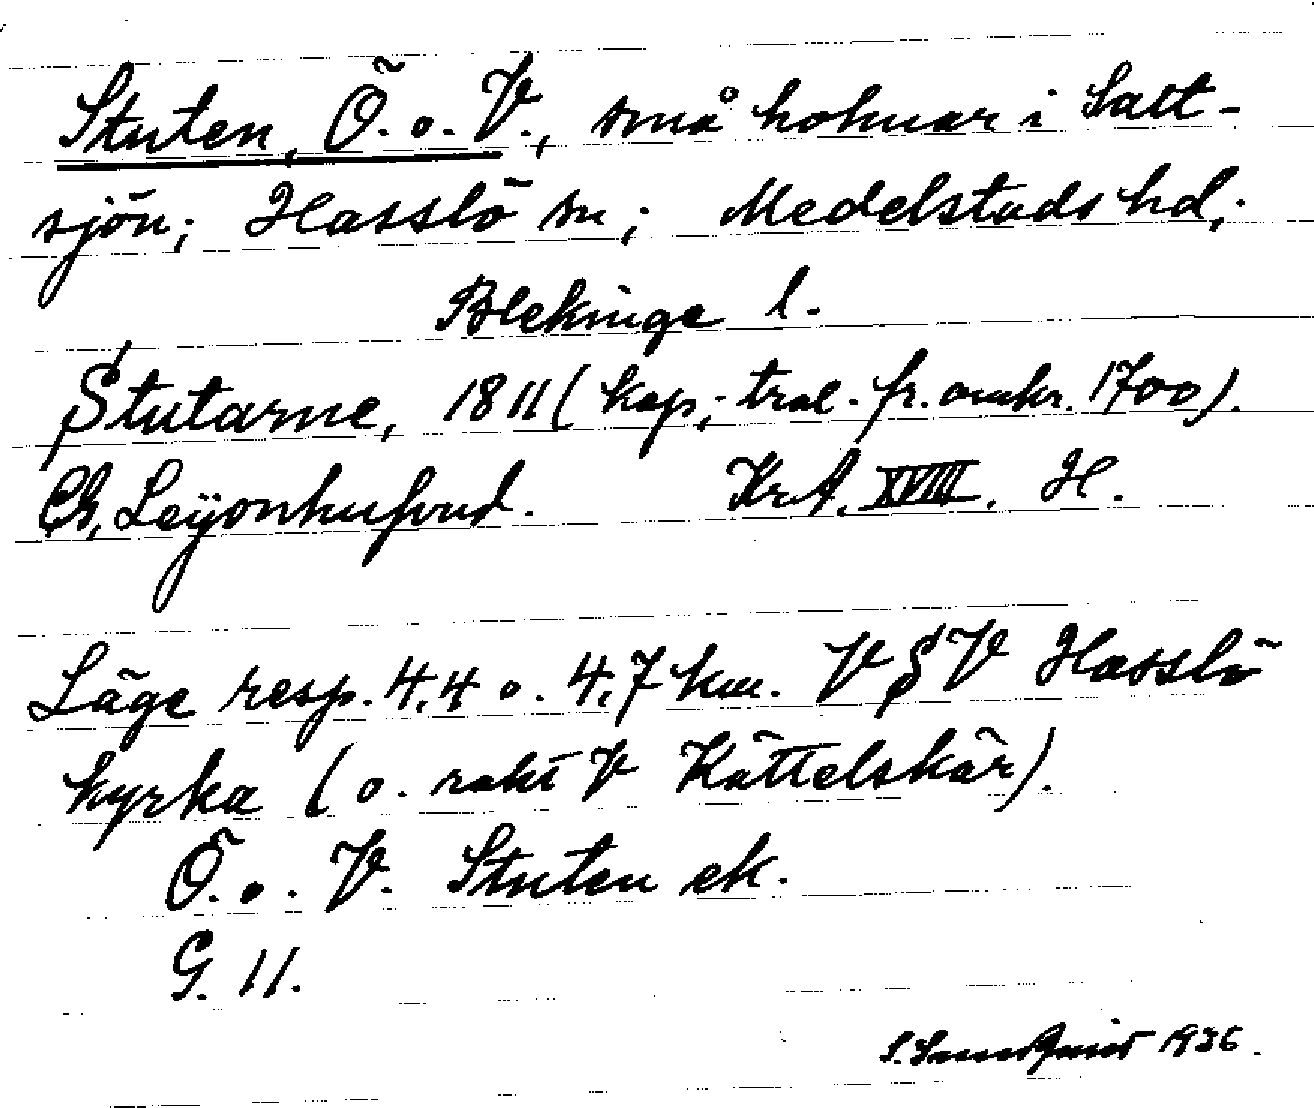 Stuten, Ö. o. V., små holmar i Salt-
sjön; Hasslö sn; Medelstads hd;
Blekinge l.
Stutarne, 1811 (kop; tral. fr. omkr. 1700).
Ch. Leÿonhufvud. KrA. XVIII. H.
Läge resp. 4,4 o. 4,7 km. V S V Hasslö
kyrka (o. rakt V Kättelskär).
Ö. o. V. Stuten ek.
G. 11.
S. Sundquist 1936.